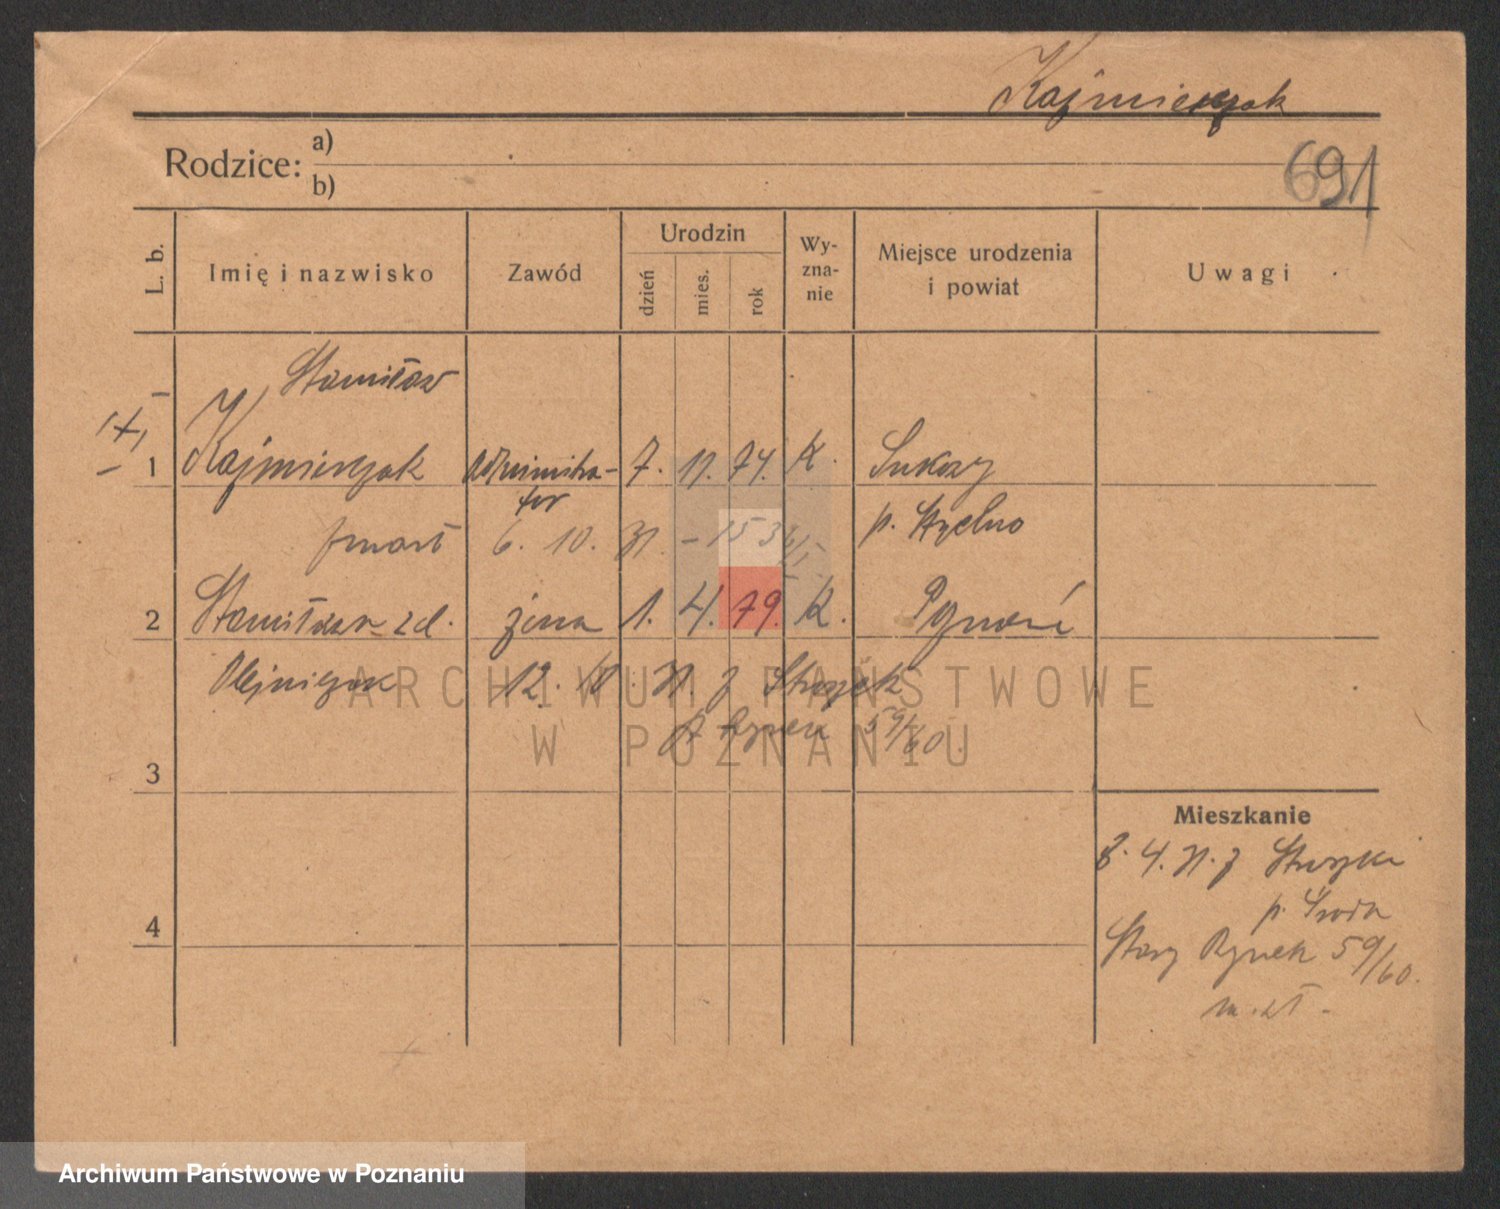 Kaźmierczak
691
Rodzice:
a)
b)
L. b.
Imię i nazwisko
Zawód
Urodzin
dzień
mies.
rok
Wy-
zna-
nie
Miejsce urodzenia
i powiat
Uwagi
Stanisław
1 Kaźmierczak Administra- 7. 11. 74. K.
tor
p. Strzelno
zmarł 6. 10. 31. - 153
2 Stanisława zd. żona 1. 4. 79. K. Poznań
Olejniczak 12. 31. z
Rynek 59/60.
3
4
Mieszkanie
8. 4. 31. z
p. Środa
Stary Rynek 59/60.
ARCHIWUM PAŃSTWOWE
W POZNANIU
Archiwum Państwowe w Poznaniu